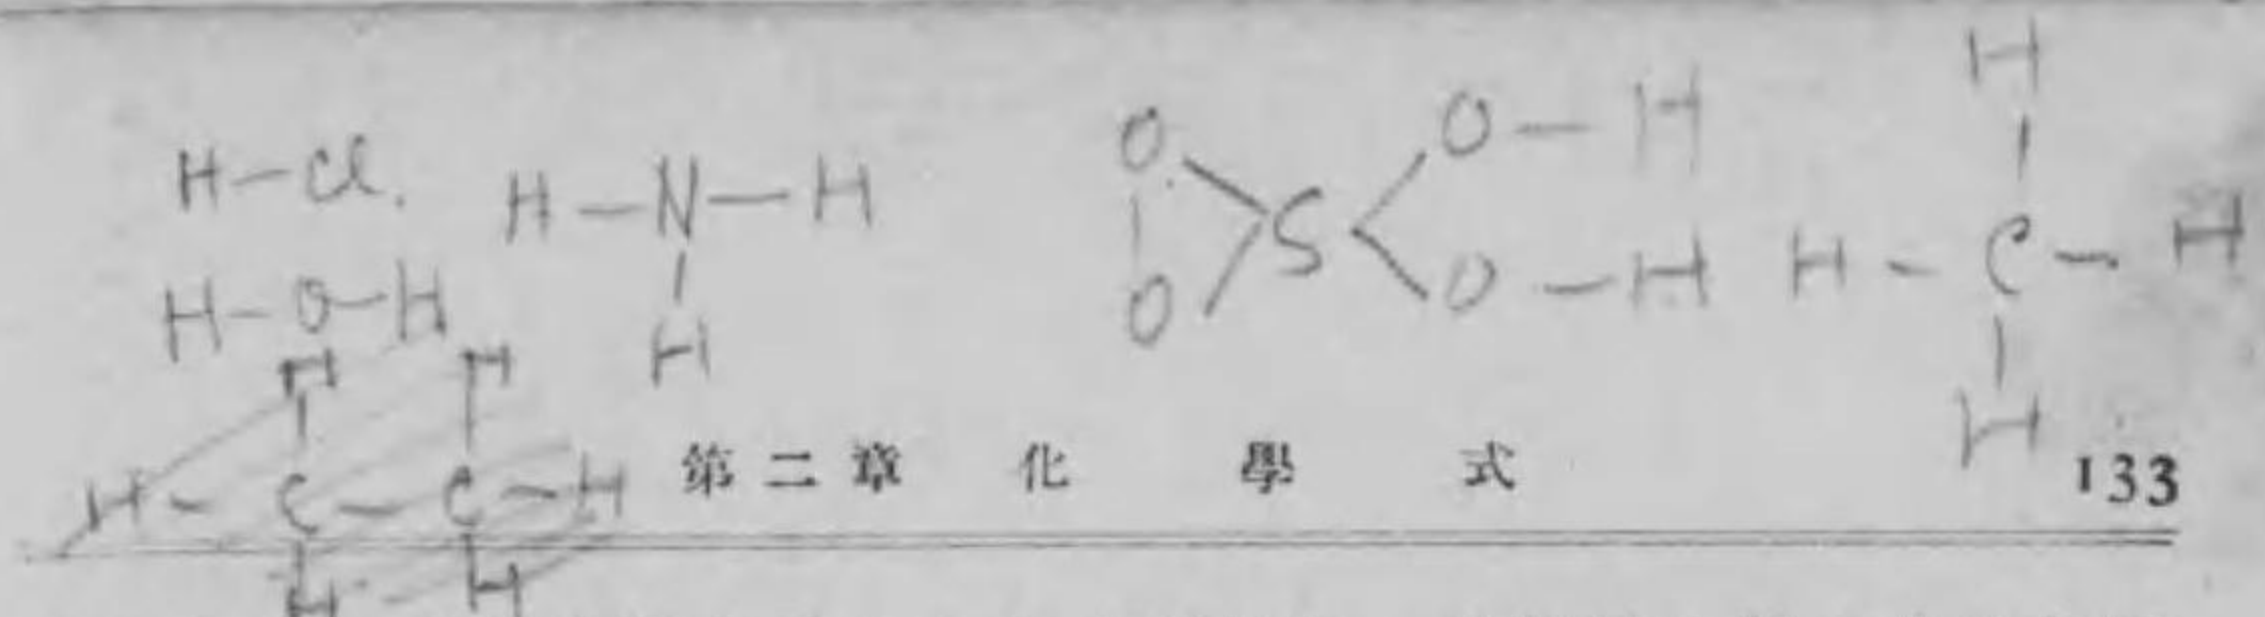 H-Cl.
H-N-H
H
H-O-H
O
O
S
O-H
O-H
H
H-C-H
H
H H
H-C-C-H
H H
第二章 化學式 133